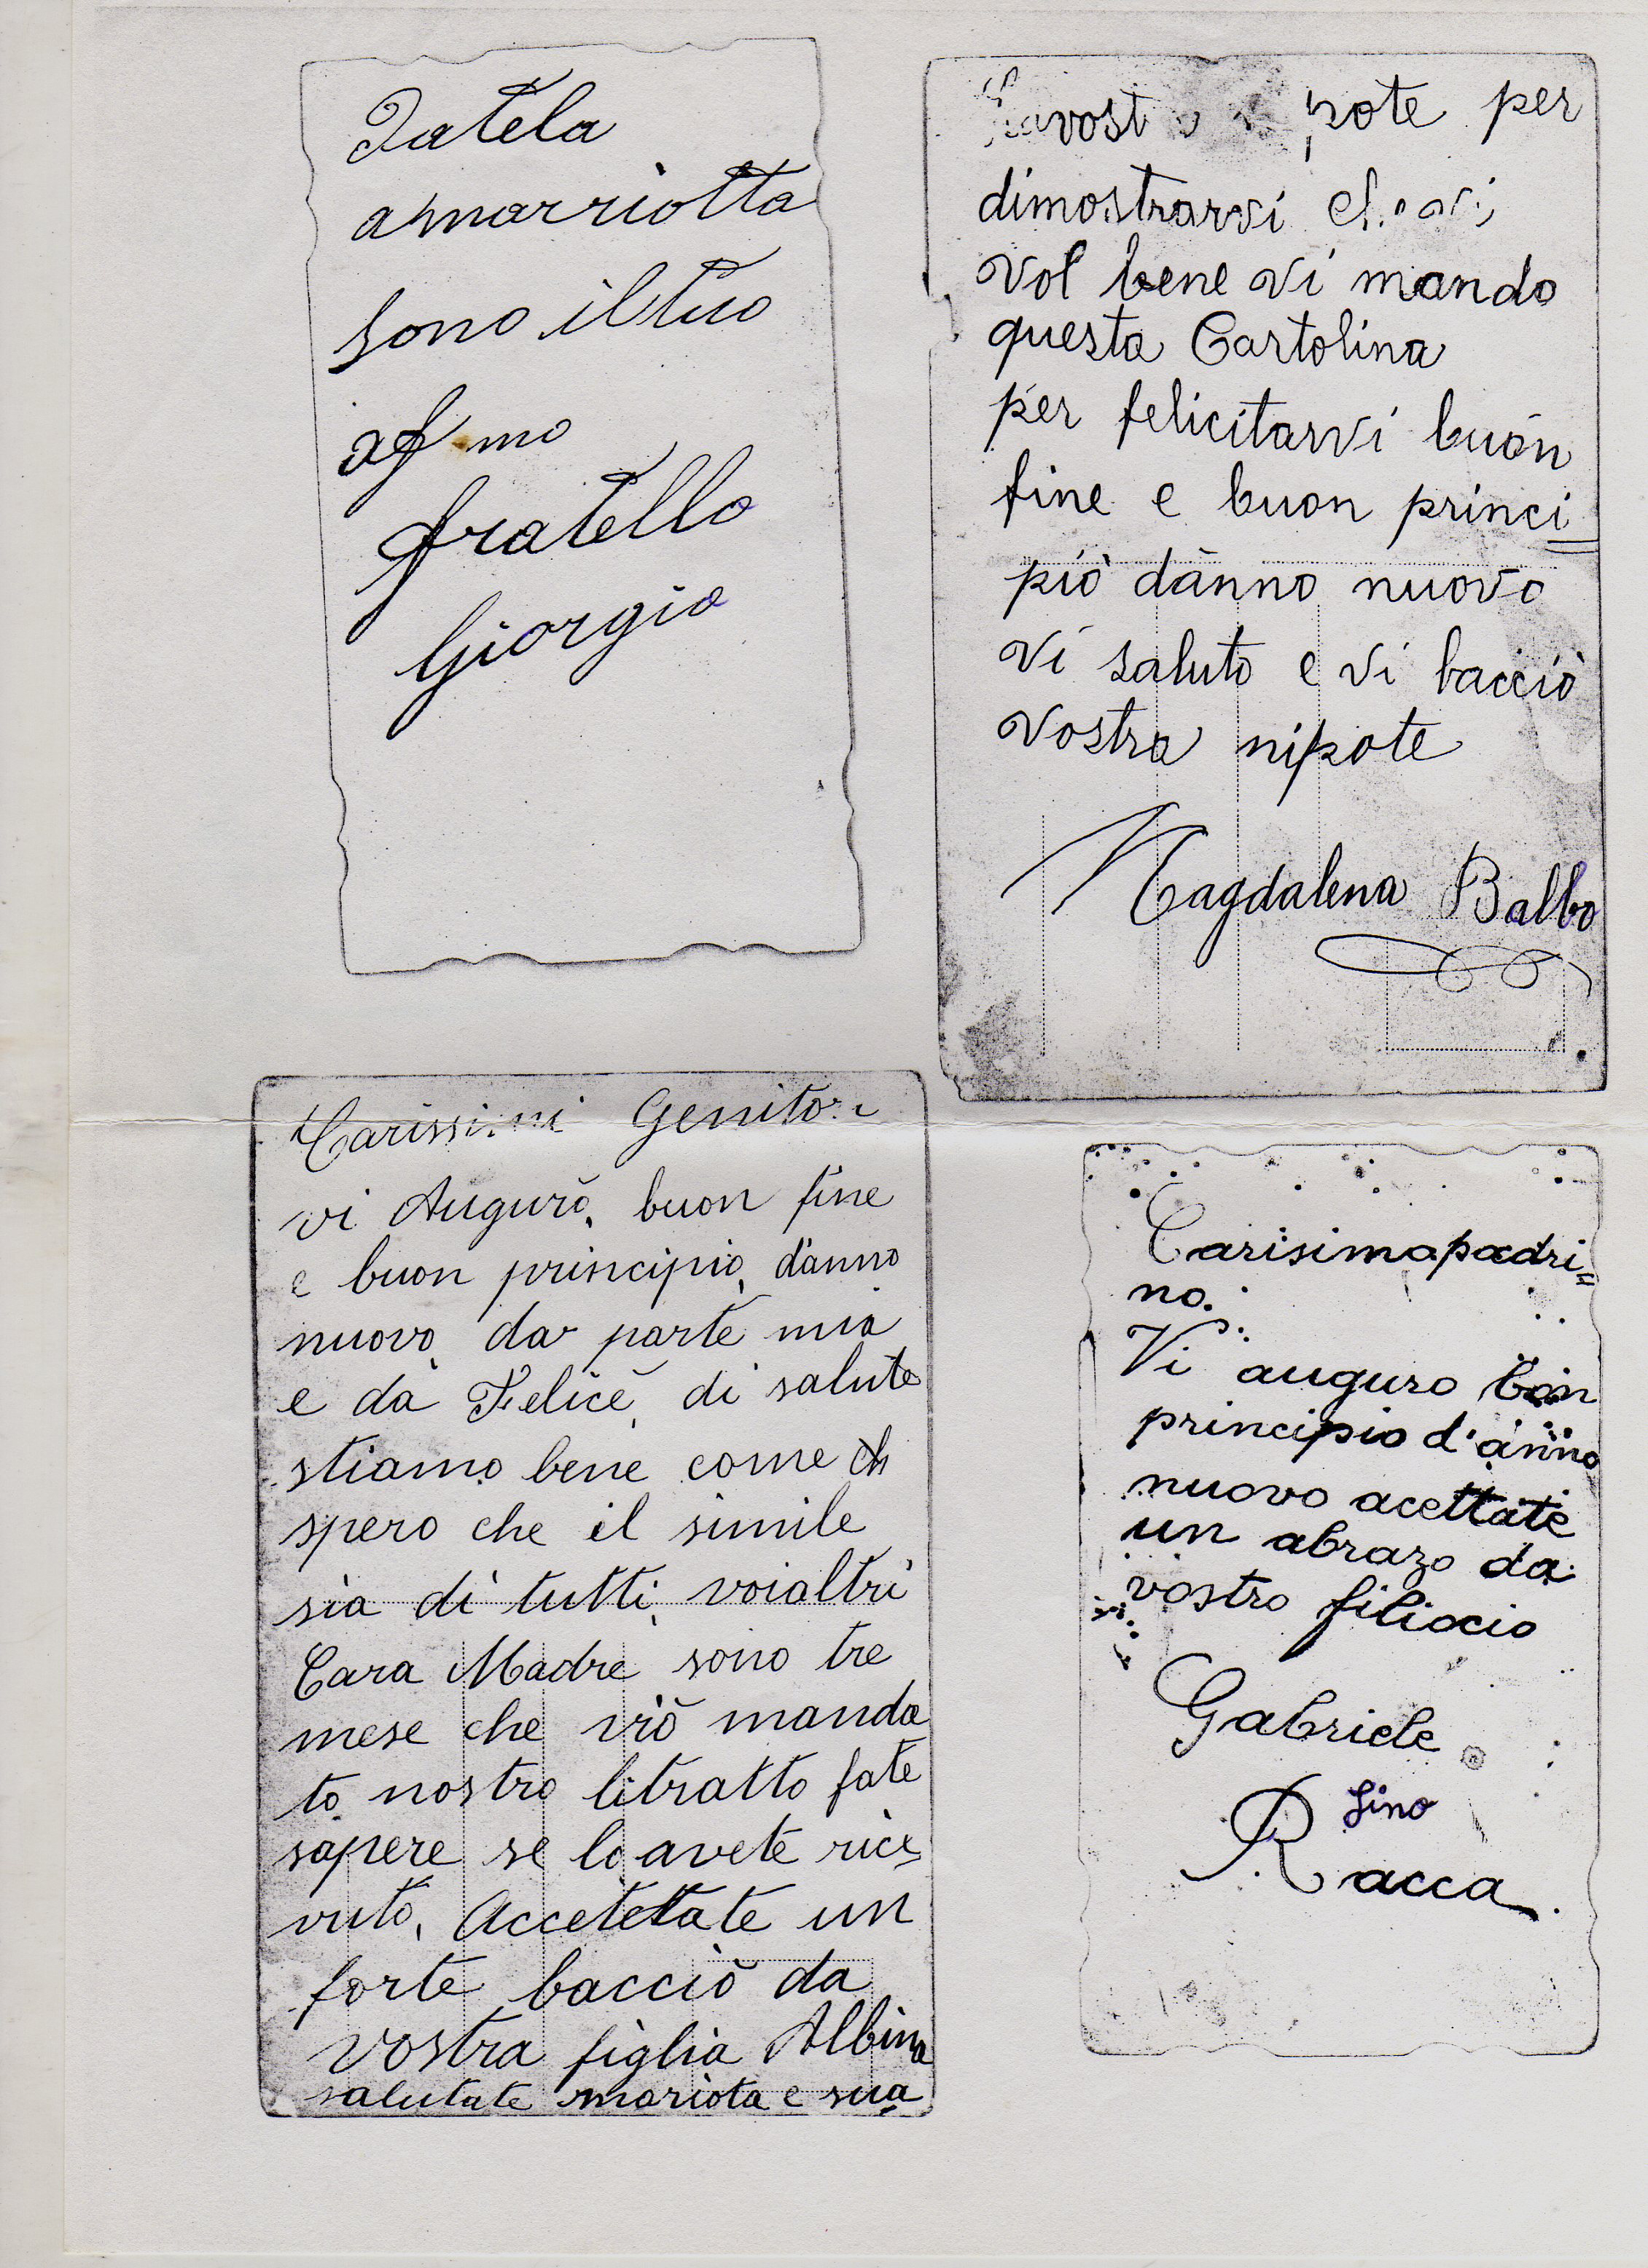 Datela
amarriotta
sono iltuo
af mo
fratello
Giorgio
per
dimostrarvi
vol bene vi mando
questa Cartolina
per felicitarvi buon
fine e buon princi=
piò dànno nuovo
vi saluto e vi bacciò
vostra nipote
Magdalena Balbo
Carissimi Genitori
vi Augurò, buon fine
e buon principiò, d'anno
nuovo, da parte mia
e da Felice, di salute
stiamo bene come
spero che il simile
sia di tutti, voialtri
Cara Madre sono tre
mese che viò manda
to nostro litratto fate
sapere se lo avete rice
vuto, Accetetate un
forte bacciò da
vostra figlia Albina
salutate mariota e sua
Carisimo padri=
no.
Vi auguro bon
principio d'anno
nuovo acettate
un abrazo da
vostro filiocio
Gabriele
fino
Racca